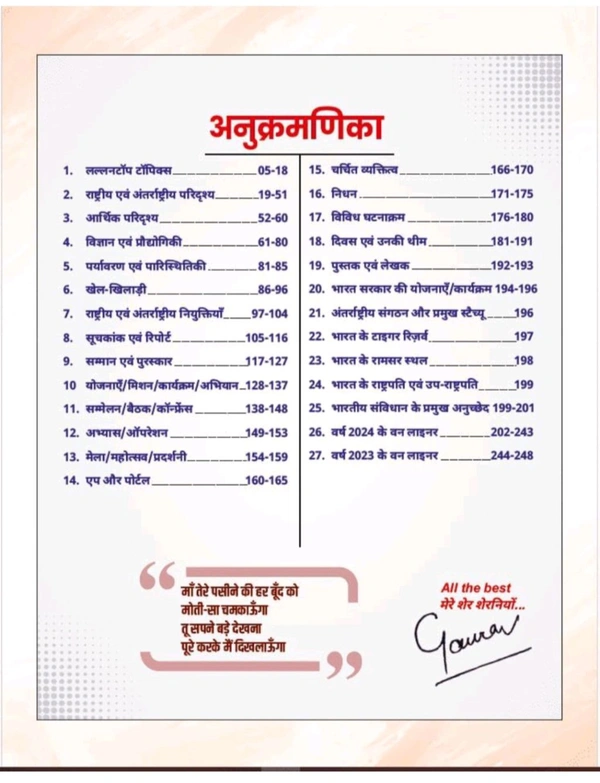 अनुक्रमणिका
1. लल्लनटॉप टॉपिक्स 05-18
2. राष्ट्रीय एवं अंतर्राष्ट्रीय परिदृश्य 19-51
3. आर्थिक परिदृश्य 52-60
4. विज्ञान एवं प्रौद्योगिकी 61-80
5. पर्यावरण एवं पारिस्थितिकी 81-85
6. खेल-खिलाड़ी 86-96
7. राष्ट्रीय एवं अंतर्राष्ट्रीय नियुक्तियाँ 97-104
8. सूचकांक एवं रिपोर्ट 105-116
9. सम्मान एवं पुरस्कार 117-127
10 योजनाएँ/मिशन/कार्यक्रम/अभियान 128-137
11. सम्मेलन/बैठक/कॉन्फ्रेंस 138-148
12. अभ्यास/ऑपरेशन 149-153
13. मेला/महोत्सव/प्रदर्शनी 154-159
14. एप और पोर्टल 160-165
15. चर्चित व्यक्तित्व 166-170
16. निधन 171-175
17. विविध घटनाक्रम 176-180
18. दिवस एवं उनकी थीम 181-191
19. पुस्तक एवं लेखक 192-193
20. भारत सरकार की योजनाएँ/कार्यक्रम 194-196
21. अंतर्राष्ट्रीय संगठन और प्रमुख स्टैच्यू 196
22. भारत के टाइगर रिज़र्व 197
23. भारत के रामसर स्थल 198
24. भारत के राष्ट्रपति एवं उप-राष्ट्रपति 199
25. भारतीय संविधान के प्रमुख अनुच्छेद 199-201
26. वर्ष 2024 के वन लाइनर 202-243
27. वर्ष 2023 के वन लाइनर 244-248
माँ तेरे पसीने की हर बूँद को
मोती-सा चमकाऊँगा
तू सपने बड़े देखना
पूरे करके मैं दिखलाऊँगा
All the best
मेरे शेर शेरनियों...
Gaurav